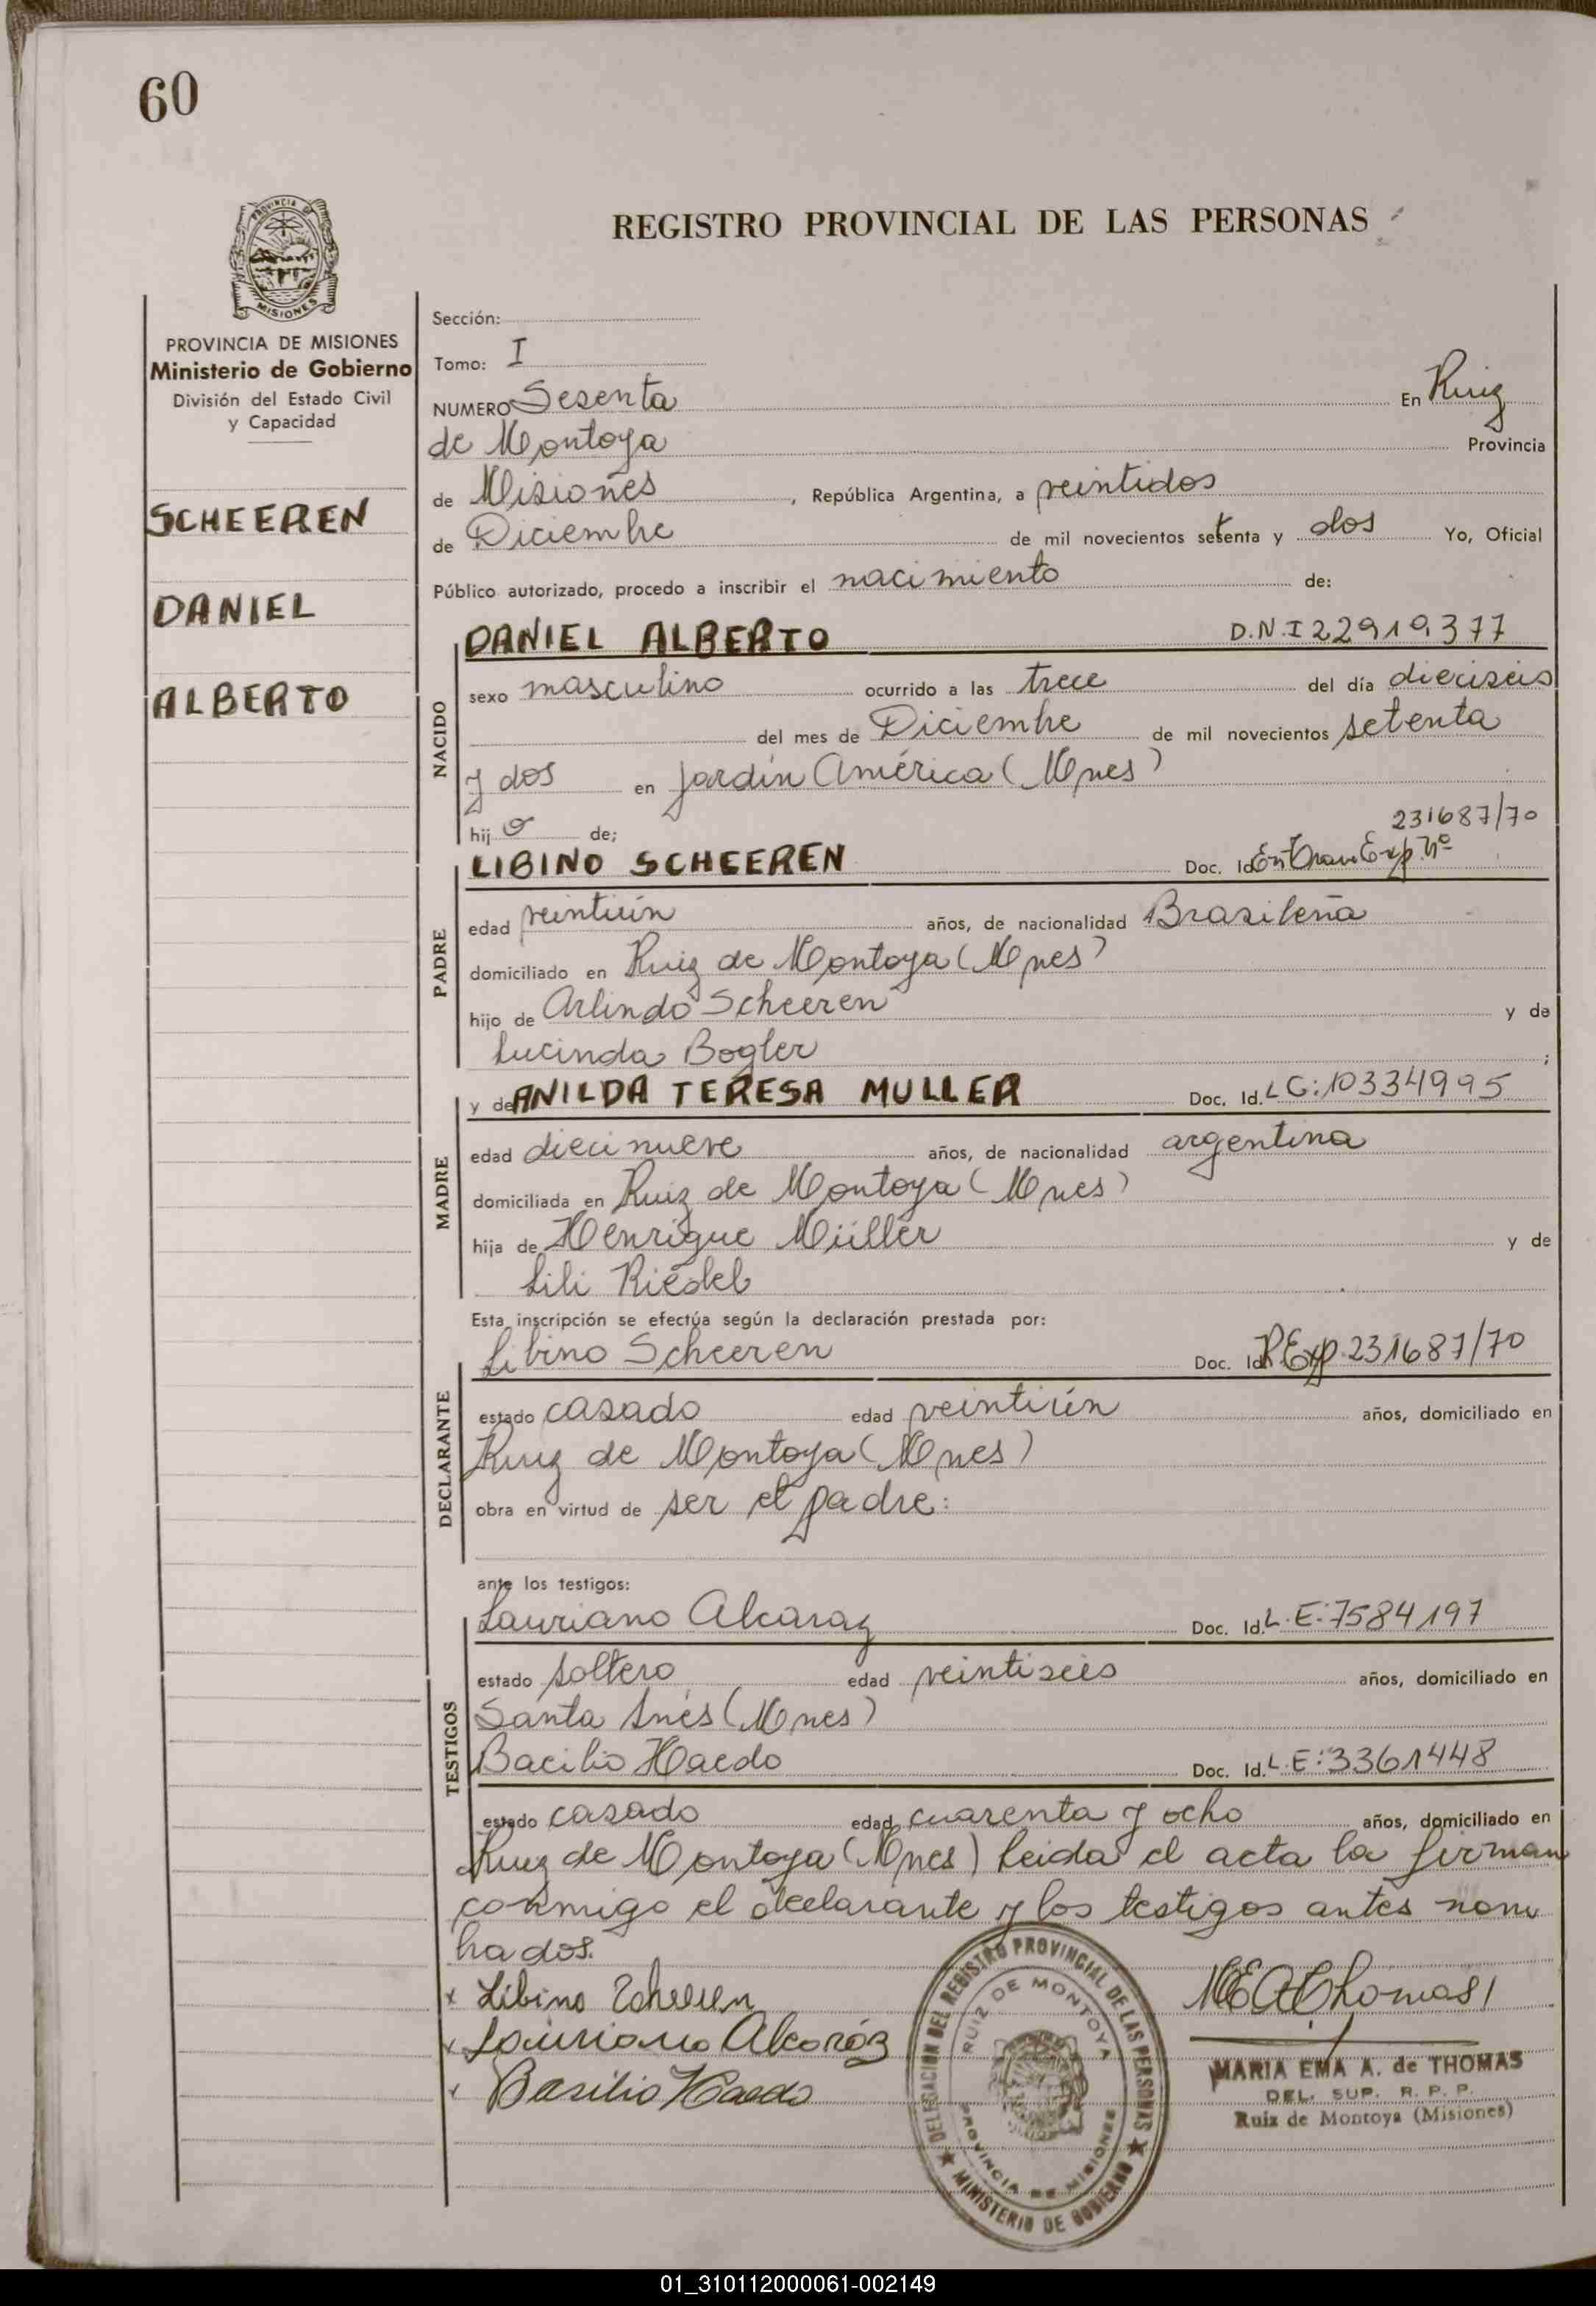 60
PROVINCIA DE
MISIONES
REGISTRO PROVINCIAL DE LAS PERSONAS
PROVINCIA DE MISIONES
Ministerio de Gobierno
División del Estado Civil
y Capacidad
SCHEEREN
DANIEL
ALBERTO
Sección:
Tomo: I
NUMERO Sesenta En Ruiz
de Montoya Provincia
de Misiones, República Argentina, a veintidos
de Diciembre de mil novecientos setenta y dos Yo, Oficial
Público autorizado, procedo a inscribir el nacimiento de:
NACIDO
DANIEL ALBERTO D.N.I 22919377
sexo masculino ocurrido a las trece del día dieciseis
del mes de Diciembre de mil novecientos setenta
y dos en Jardín América (Mnes)
hij o de; 231687/70
PADRE
LIBINO SCHEEREN Doc. Id. En Exp. Nº
edad veintiún años, de nacionalidad Brasileña
domiciliado en Ruiz de Montoya (Mnes)
hijo de Arlindo Scheeren y de
Lucinda Bogler ;
MADRE
y de ANILDA TERESA MULLER Doc. Id. LC: 10334995
edad diecinueve años, de nacionalidad argentina
domiciliada en Ruiz de Montoya (Mnes)
hija de Henrique Müller y de
Lili Riedel
Esta inscripción se efectúa según la declaración prestada por:
DECLARANTE
Libino Scheeren Doc. Id. Exp. 231687/70
estado casado edad veintiún años, domiciliado en
Ruiz de Montoya (Mnes)
obra en virtud de ser el padre:
ante los testigos:
TESTIGOS
Lauriano Alcaraz Doc. Id. L.E: 7584197
estado soltero edad veintiseis años, domiciliado en
Santa Inés (Mnes)
Bacilio Haedo Doc. Id. L.E: 3361448
estado casado edad cuarenta y ocho años, domiciliado en
Ruiz de Montoya (Mnes) leida el acta la firman
conmigo el declarante y los testigos antes nom
brados.
x Libino Scheeren
x Lauriano Alcaráz
x Basilio Haedo
DELEGACIÓN DEL REGISTRO PROVINCIAL DE LAS PERSONAS
RUIZ DE MONTOYA
PROVINCIA DE MISIONES
★ MINISTERIO DE GOBIERNO ★
MEAThomas
MARIA EMA A. de THOMAS
DEL. SUP. R. P. P.
Ruiz de Montoya (Misiones)
01_310112000061-002149